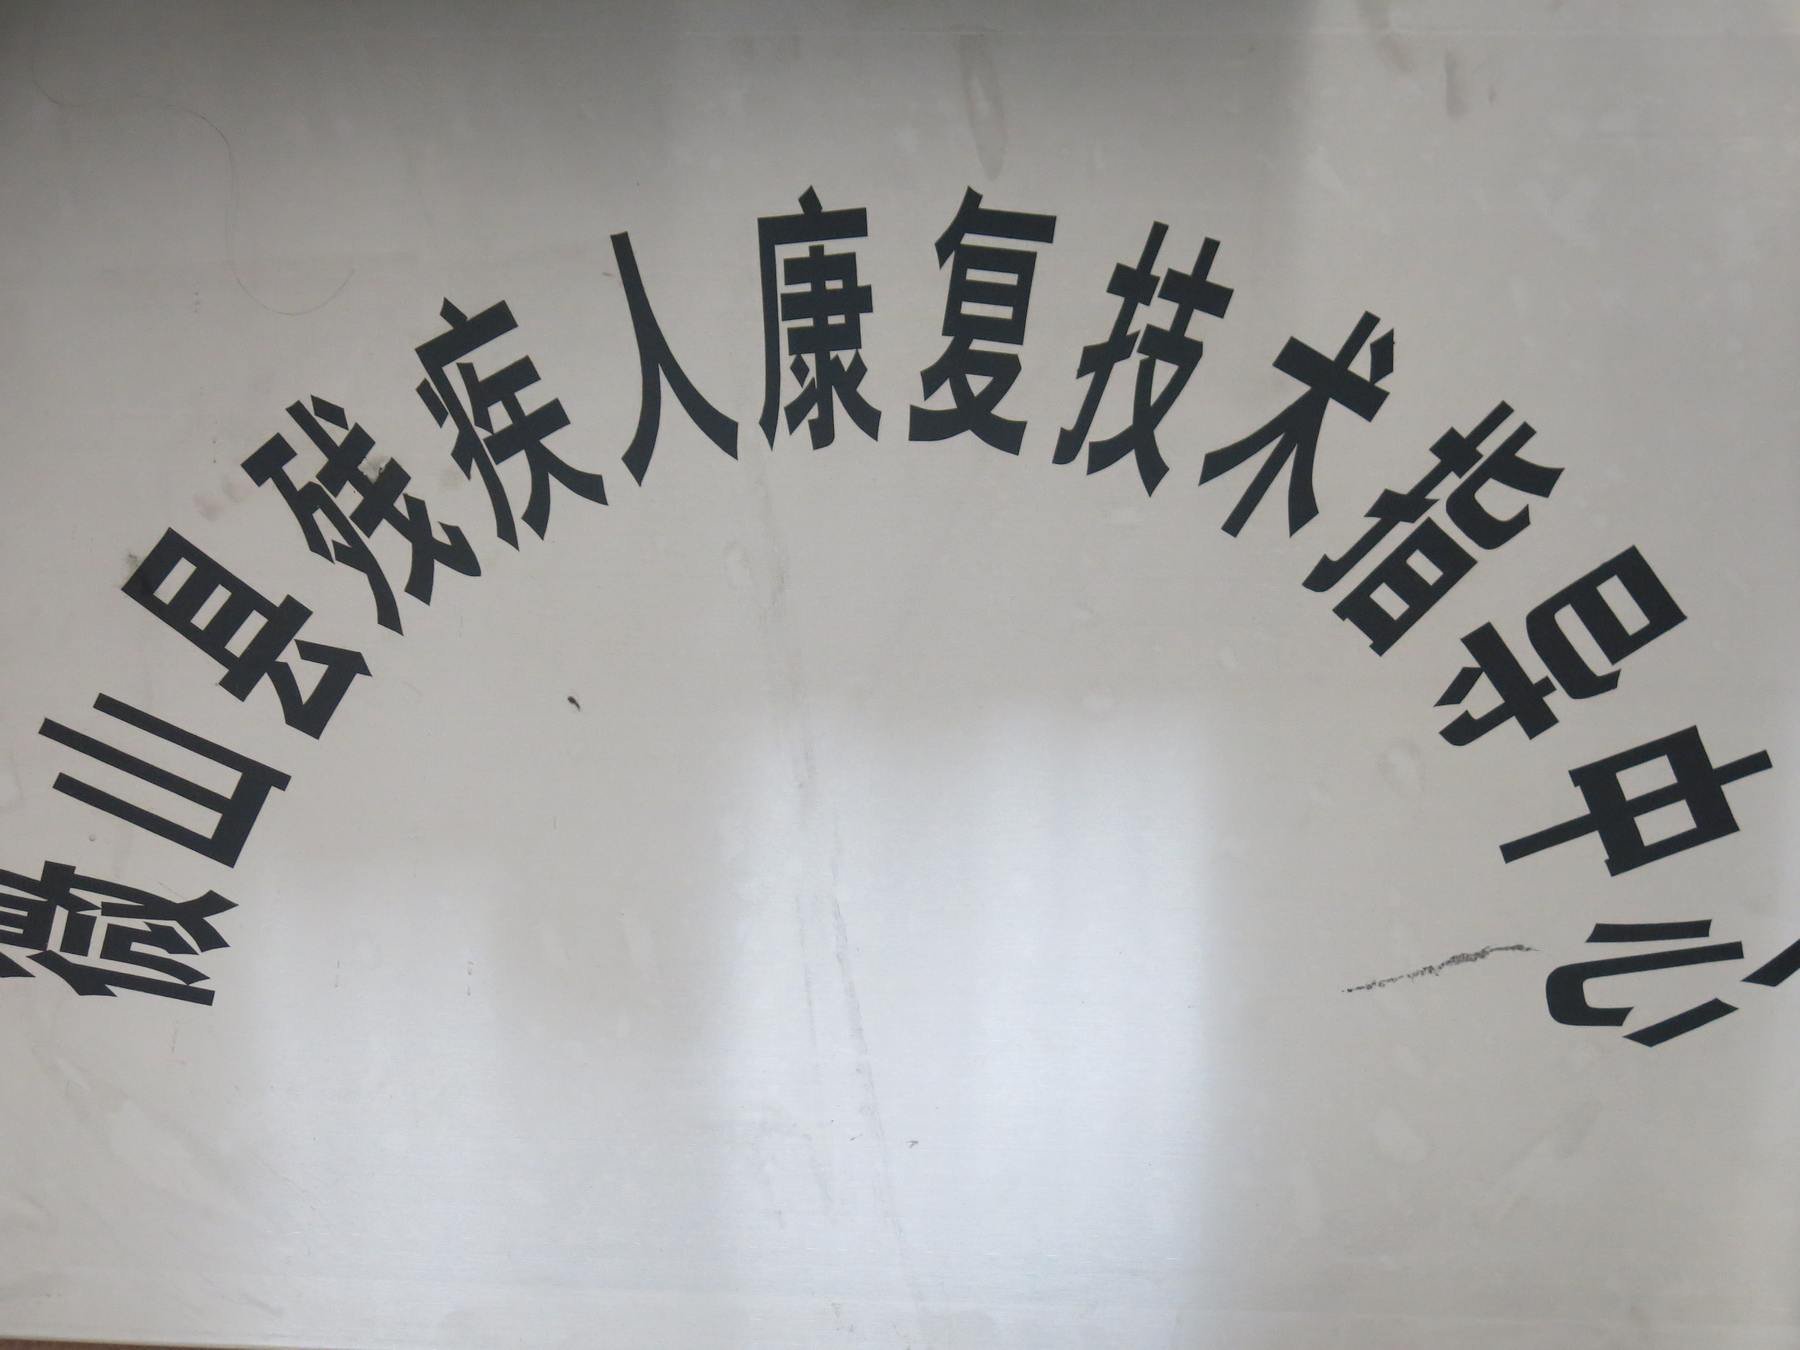 微山县残疾人康复技术指导中心